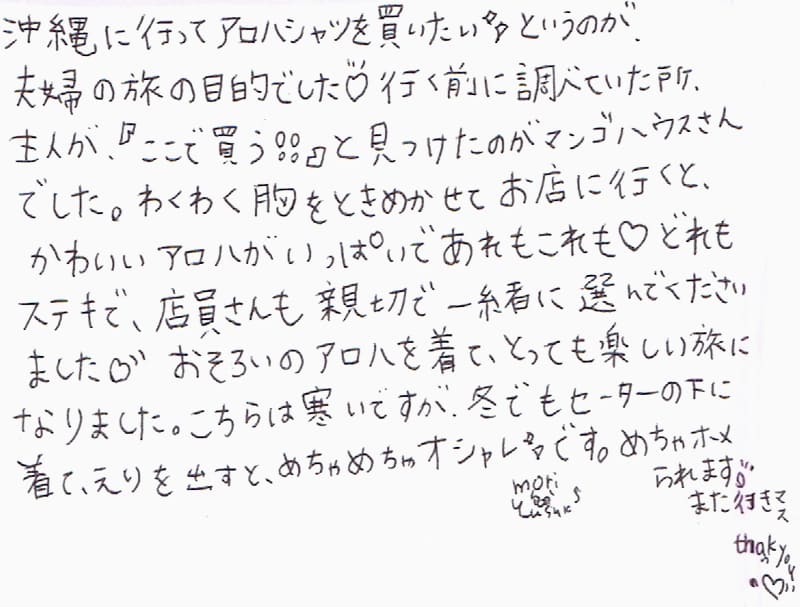 沖縄に行ってアロハシャツを買いたい°°というのが、
夫婦の旅の目的でした♡行く前に調べていた所、
主人が、『ここで買う!!』と見つけたのがマンゴハウスさん
でした。わくわく胸をときめかせてお店に行くと、
かわいいアロハがいっぱいであれもこれも♡どれも
ステキで、店員さんも親切で一緒に選んでください
ました♡ おそろいのアロハを着て、とっても楽しい旅に
なりました。こちらは寒いですが、冬でもセーターの下に
着て、えりを出すと、めちゃめちゃオシャレ°°です。めちゃホメ
られます♡
また行きマス
mori
thankyou
♡